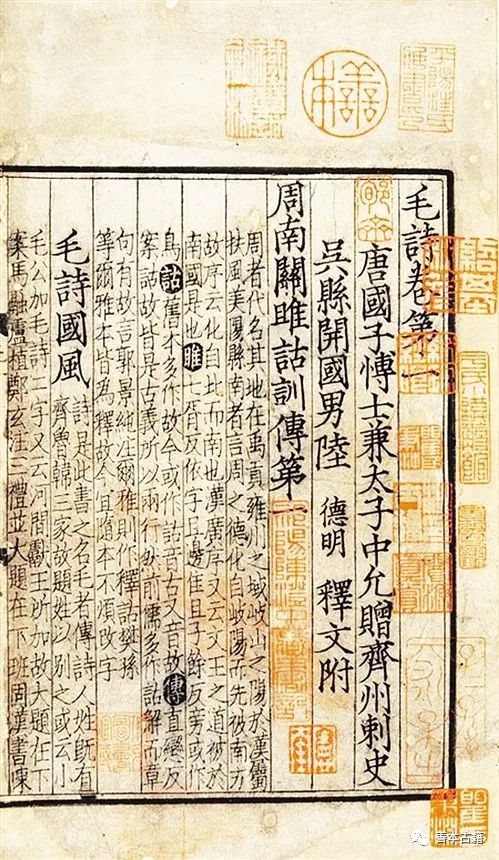 善本
毛詩卷第一
唐國子博士兼太子中允贈齊州刺史
吳縣開國男陸 德明 釋文附
周南關雎詁訓傳第一
周者代名其地在禹貢雍州之域岐山之陽於漢屬
扶風美陽縣南者言周之德化自岐陽而先被南方
故序云化自北而南也漢廣序又云文王之道被於
南國是也 雎七胥反依字且邊隹且子餘反旁或作
鳥 詁舊本多作故今或作詁音古又音故 傳直戀反
案詁故皆是古義所以兩行然前儒多作詁解而章
句有故言郭景純注爾雅則作釋詁樊孫
等爾雅本皆為釋故今宜隨本不煩改字
毛詩國風
詩是此書之名毛者傳詩人姓既有
齊魯韓三家故題姓以別之或云小
毛公加毛詩二字又云河間獻王所加故大題在下
案馬融盧植鄭玄注三禮並大題在下班固漢書陳
善本古籍